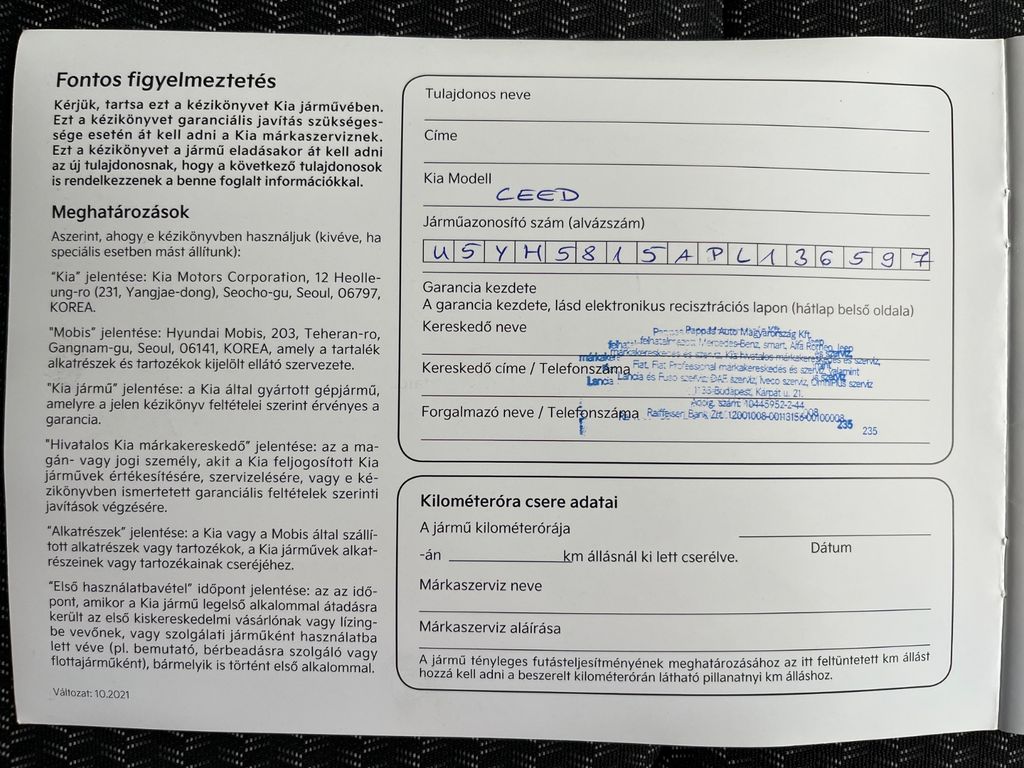 Fontos figyelmeztetés
Kérjük, tartsa ezt a kézikönyvet Kia járművében.
Ezt a kézikönyvet garanciális javítás szükséges-
sége esetén át kell adni a Kia márkaszerviznek.
Ezt a kézikönyvet a jármű eladásakor át kell adni
az új tulajdonosnak, hogy a következő tulajdonosok
is rendelkezzenek a benne foglalt információkkal.
Meghatározások
Aszerint, ahogy e kézikönyvben használjuk (kivéve, ha
speciális esetben mást állítunk):
"Kia" jelentése: Kia Motors Corporation, 12 Heolle-
ung-ro (231, Yangjae-dong), Seocho-gu, Seoul, 06797,
KOREA.
"Mobis" jelentése: Hyundai Mobis, 203, Teheran-ro,
Gangnam-gu, Seoul, 06141, KOREA, amely a tartalék
alkatrészek és tartozékok kijelölt ellátó szervezete.
"Kia jármű" jelentése: a Kia által gyártott gépjármű,
amelyre a jelen kézikönyv feltételei szerint érvényes a
garancia.
"Hivatalos Kia márkakereskedő" jelentése: az a ma-
gán- vagy jogi személy, akit a Kia feljogosított Kia
járművek értékesítésére, szervizelésére, vagy e ké-
zikönyvben ismertetett garanciális feltételek szerinti
javítások végzésére.
"Alkatrészek" jelentése: a Kia vagy a Mobis által szállí-
tott alkatrészek vagy tartozékok, a Kia járművek alkat-
részeinek vagy tartozékainak cseréjéhez.
"Első használatbavétel" időpont jelentése: az az idő-
pont, amikor a Kia jármű legelső alkalommal átadásra
került az első kiskereskedelmi vásárlónak vagy lízing-
be vevőnek, vagy szolgálati járműként használatba
lett véve (pl. bemutató, bérbeadásra szolgáló vagy
flottajárműként), bármelyik is történt első alkalommal.
Változat: 10.2021
Tulajdonos neve
Címe
Kia Modell
CEED
Járműazonosító szám (alvázszám)
U5YH5815APL136597
Garancia kezdete
A garancia kezdete, lásd elektronikus recisztrációs lapon (hátlap belső oldala)
Kereskedő neve
Pappas Auto Magyarország Kft.
felhatalmazott Mercedes-Benz, smart, Alfa Romeo, Jeep
márkakereskedés és szerviz, Kia hivatalos márkakereskedés és szerviz,
Kereskedő címe / Telefonszáma
Fiat, Fiat Professional márkakereskedés és szerviz, valamint
Lancia és Fuso szerviz, DAF szerviz, Iveco szerviz, Omniplus szerviz
1133-Budapest, Kárpát u. 21.
Adóig. szám: 10445952-2-44
Forgalmazó neve / Telefonszáma
Raiffeisen Bank Zrt. 12001008-00113156-00100008
235
235
Kilométeróra csere adatai
A jármű kilométerórája
Dátum
-án km állásnál ki lett cserélve.
Márkaszerviz neve
Márkaszerviz aláírása
A jármű tényleges futásteljesítményének meghatározásához az itt feltüntetett km állást
hozzá kell adni a beszerelt kilométerórán látható pillanatnyi km álláshoz.